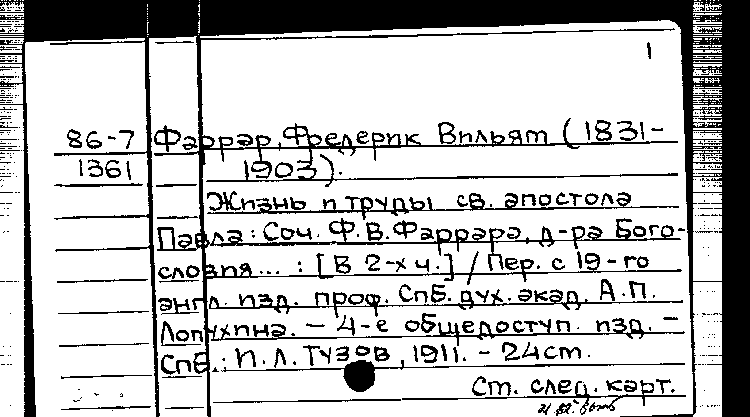 1
86-7 Фаррар, Фредерик Вильям (1831-
1361 1903).
Жизнь и труды св. апостола
Павла: Соч. Ф.В.Фаррара, д-ра Бого-
словия... : [В 2-х ч.] / Пер. с 19-го
англ. изд. проф. Спб. дух. акад. А.П.
Лопухина. - 4-е общедоступ. изд. -
Спб.: И.Л. Тузов, 1911. - 24см.
См. след. карт.